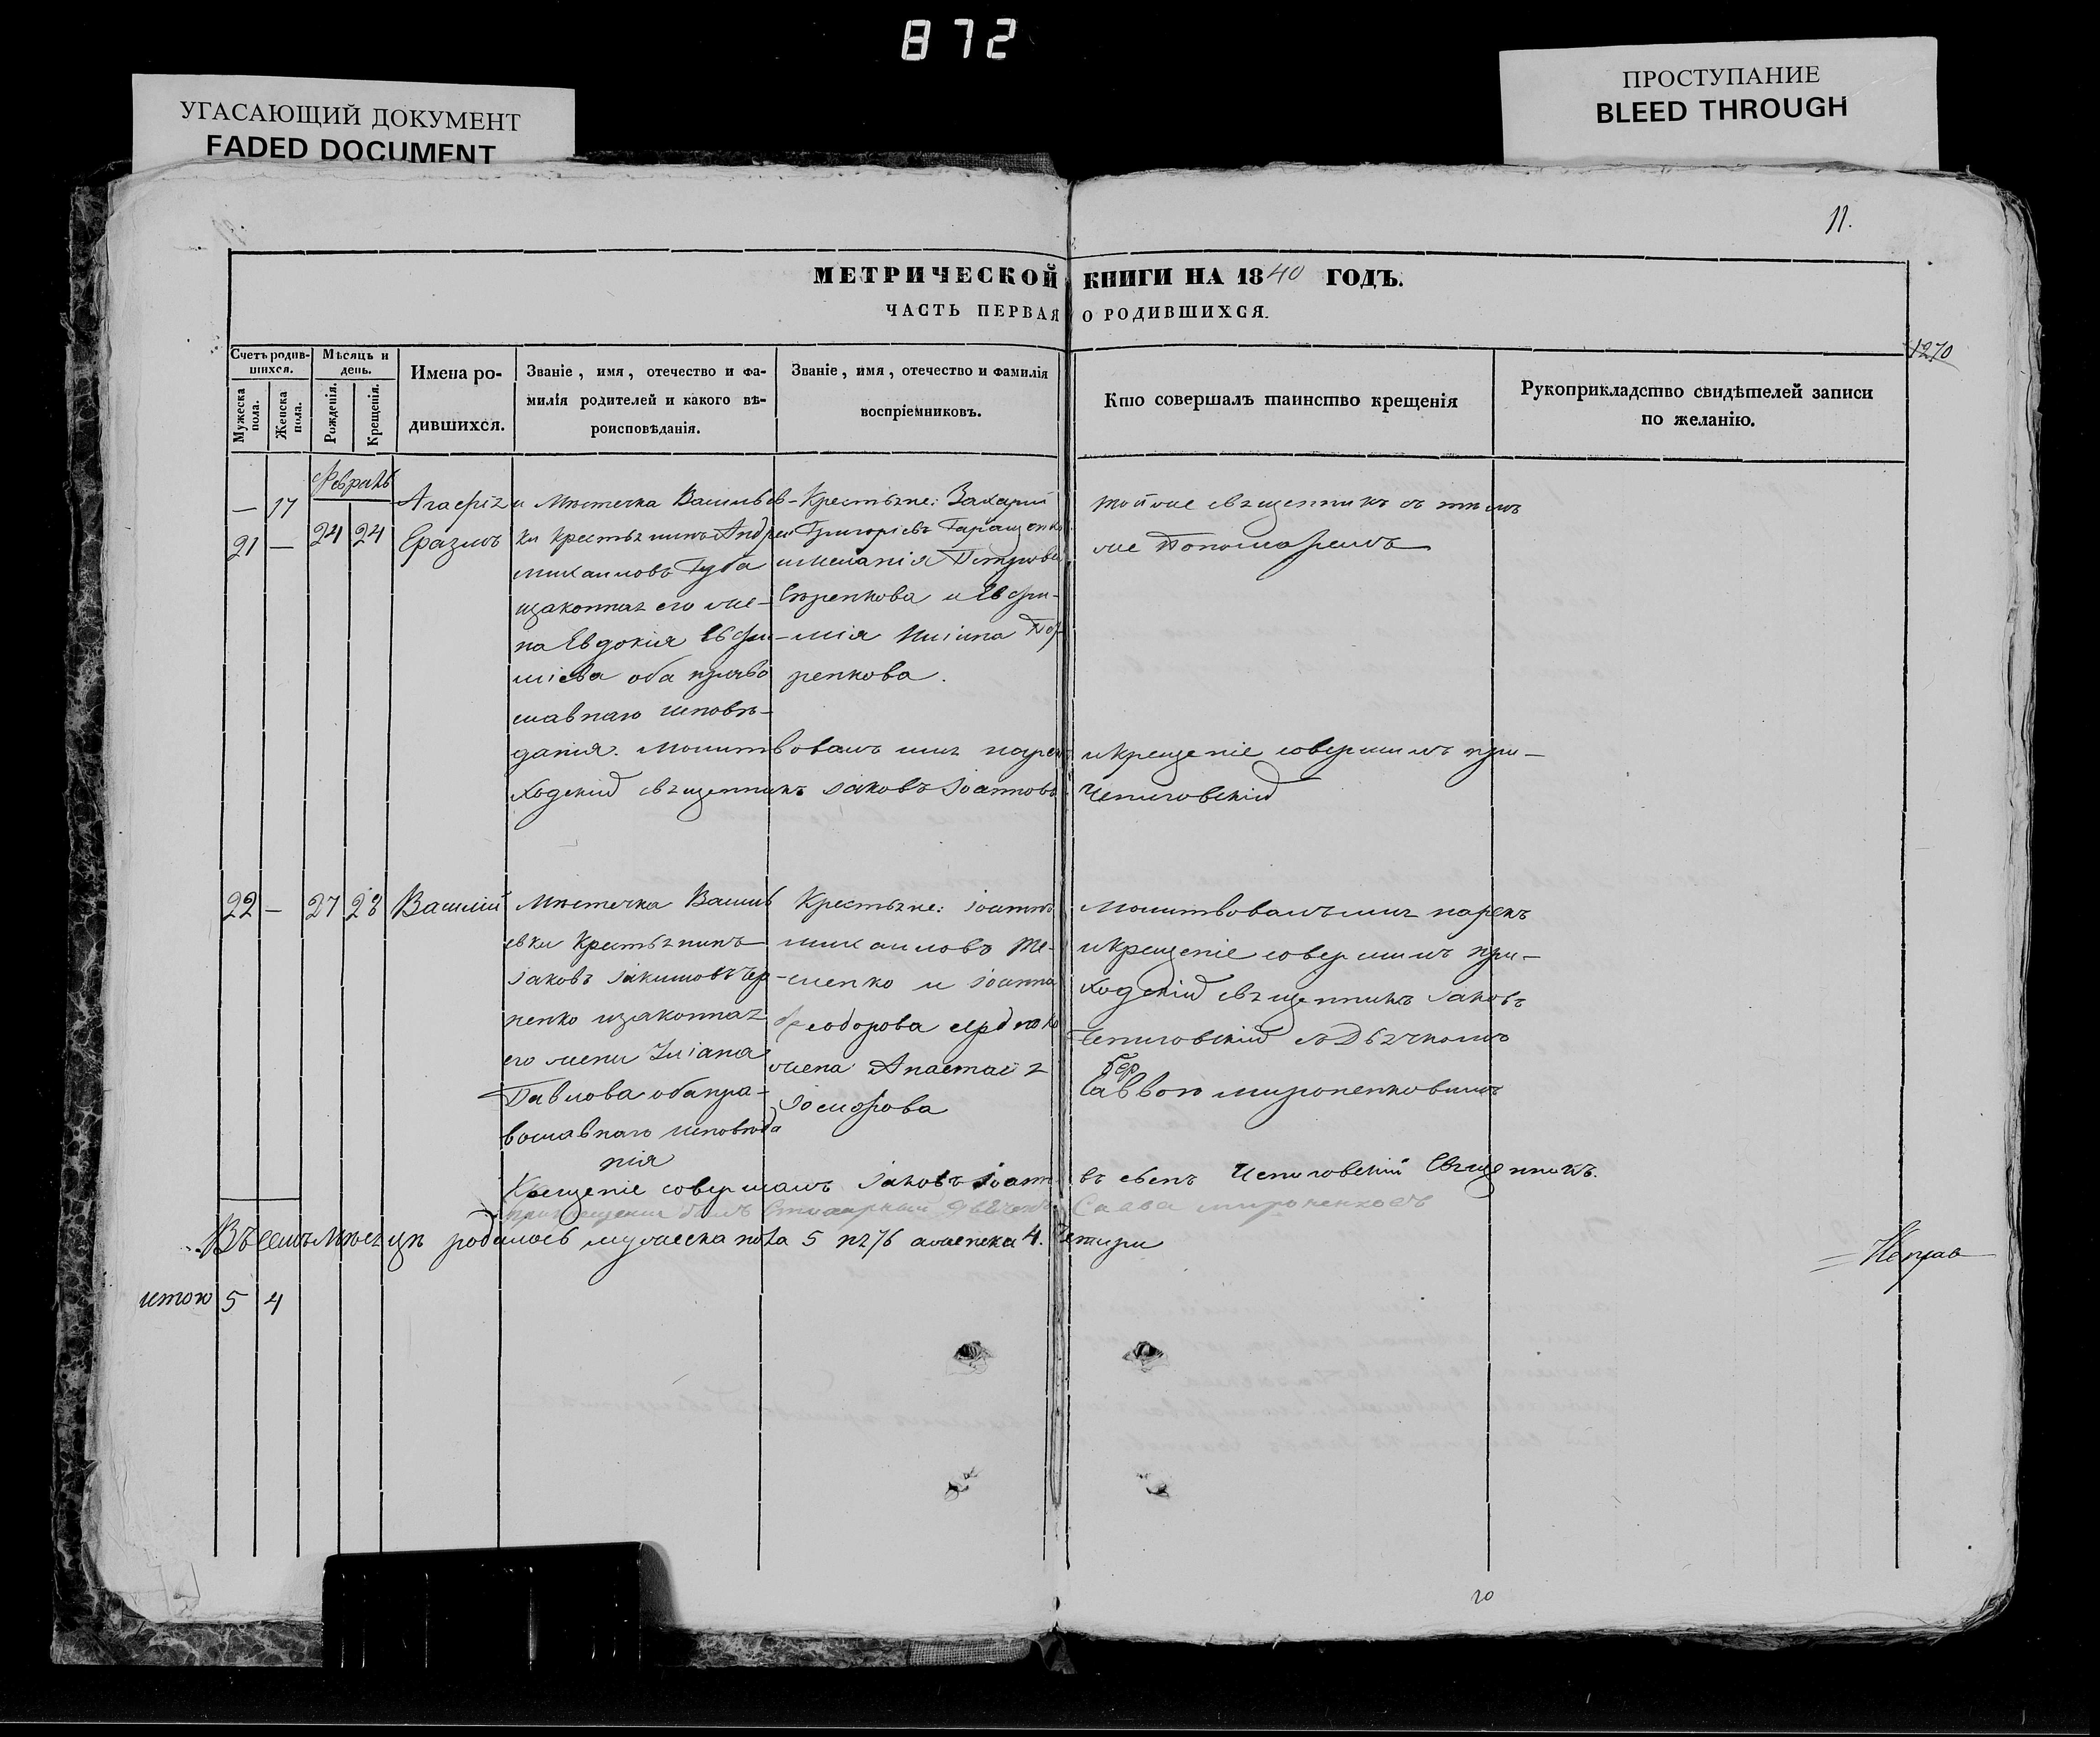 872
УГАСАЮЩИЙ ДОКУМЕНТ
FADED DOCUMENT
ПРОСТУПАНИЕ
BLEED THROUGH
11.
МЕТРИЧЕСКОЙ КНИГИ НА 1840 ГОДЪ.
ЧАСТЬ ПЕРВАЯ О РОДИВШИХСЯ.
1270
Счетъ родив-
шихся.
Мужеска
пола.
Женска
пола.
Мѣсяцъ и
день.
Рожденія.
Крещенія.
Имена ро-
дившихся.
Званіе, имя, отечество и фа-
милія родителей и какого вѣ-
роисповѣданія.
Званіе, имя, отечество и фамилія
воспріемниковъ.
Кто совершалъ таинство крещенія
Рукоприкладство свидѣтелей записи
по желанію.
Февраль
— 17
21 —
24 24
Еразмъ
Мѣстечка Васильев-
ки Крестьянинъ Андрей
Михаиловъ Губа
изаконная его же-
на Евдокія Евфи-
міева оба право
славнаго исповѣ-
данія. Молитвовалъ имя нарекъ икрещеніе совершилъ при-
ходскій священникъ Іаковъ Іоанновъ Чепиговскій
Крестьяне: Захарій
Григоріевъ Геращенко
имеланія Петрова
и Евфи-
мія
ренкова.
тойже священникъ съ тѣмъ
же Пономаремъ
22 — 27 28 Василій
Мѣстечка Василь
евки Крестьянинъ
Іаковъ Іакимовъ Чер
ненко изаконная
его жена Іуліана
Павлова оба пра-
вославнаго исповѣда
нія
Крестьяне: Іоаннъ
Михаиловъ Те-
сленко и Іоанна
Феодорова
жена Анастасія
Іосифова
Молитвовалъ имя нарекъ
икрещеніе совершилъ при-
ходскій священникъ Іаковъ
Чепиговскій съ Дьячкомъ
Саввою Мироненковымъ
Крещеніе совершалъ Іаковъ Іоанновъ сынъ Чепиговскій Священникъ.
прикрещеніи былъ Дьячекъ Савва Мироненковъ
Въ семъ мѣсяцѣ родилось мужеска пола 5 пять а женска 4. Четыри
итого 5 4
20